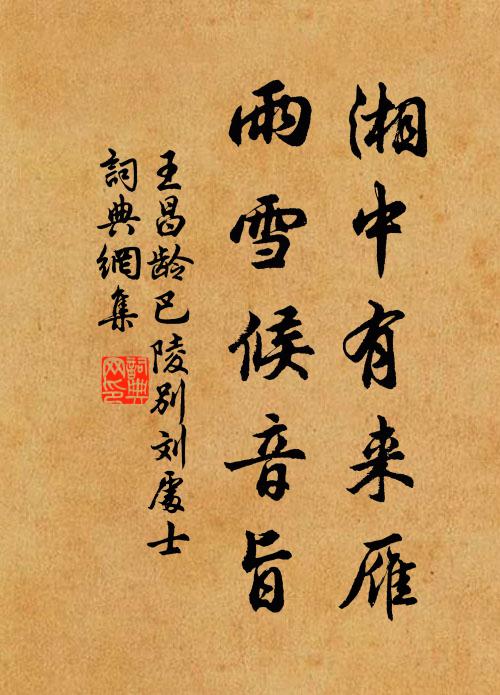 湘中有来雁
雨雪候音旨
王昌龄巴陵别刘處士
詞典網集
詞典网印